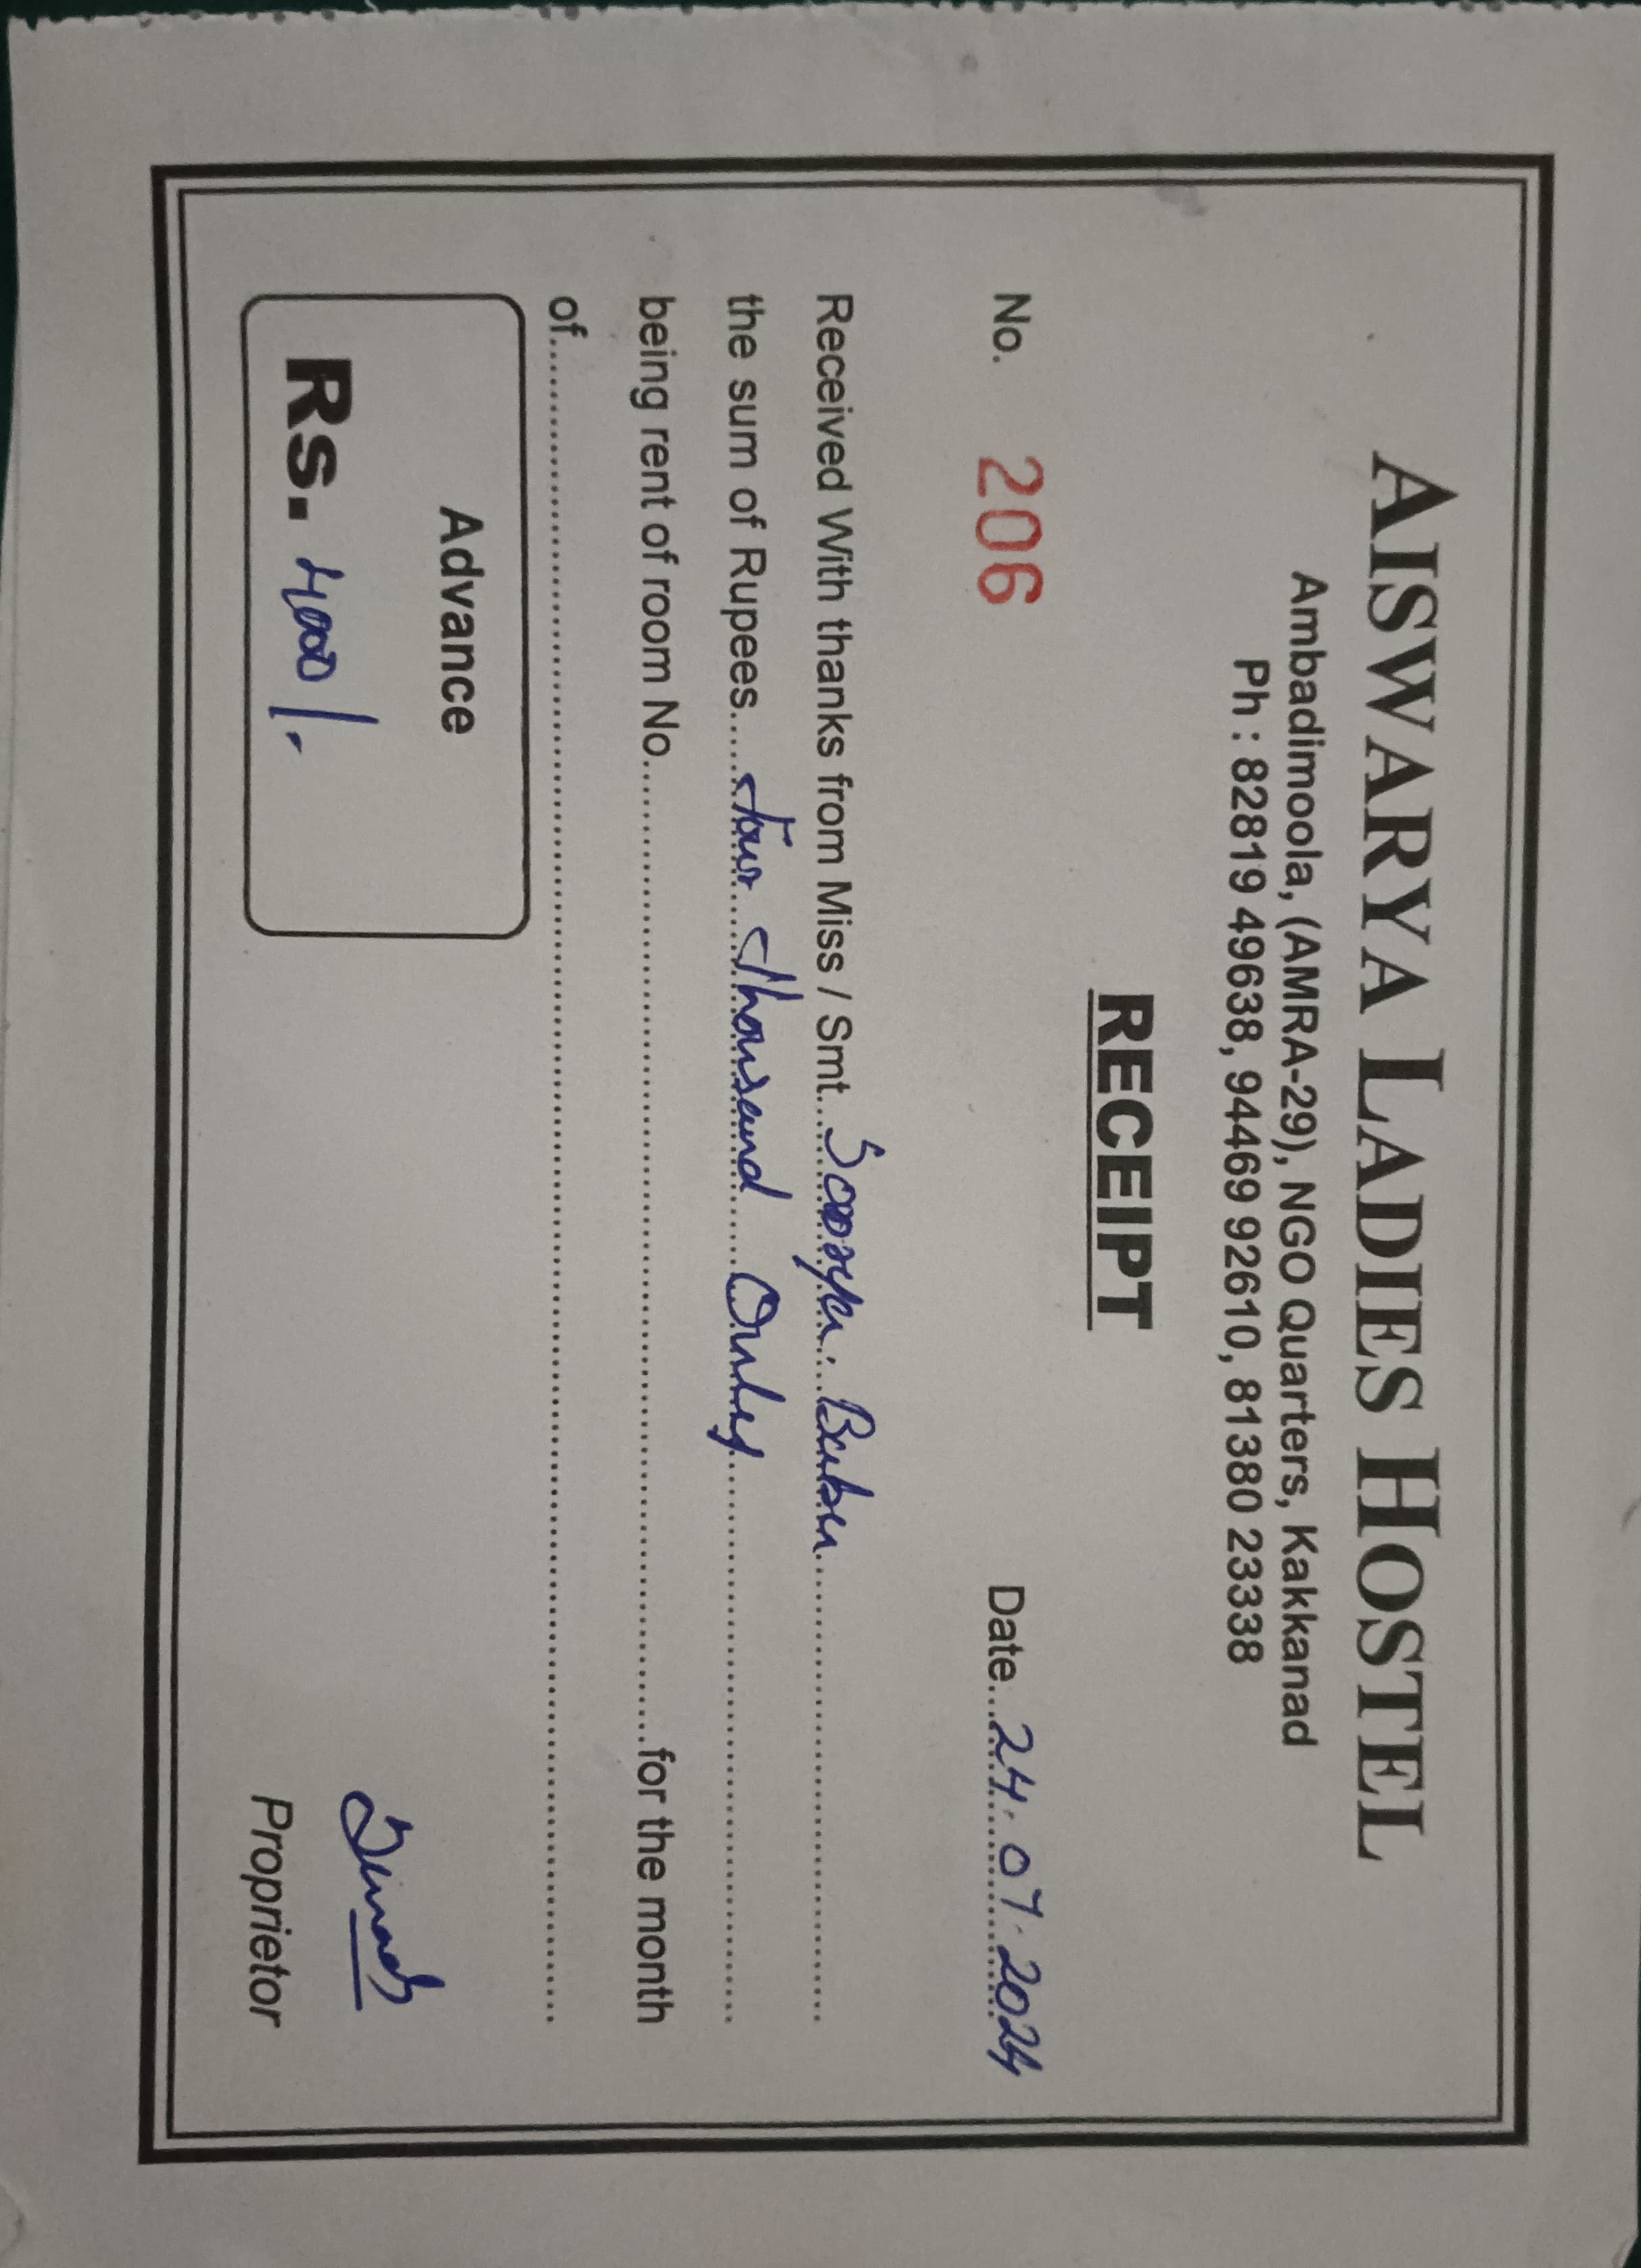 AISWARYA LADIES HOSTEL
Ambadimoola, (AMRA-29), NGO Quarters, Kakkanad
Ph : 82819 49638, 94469 92610, 81380 23338
RECEIPT
No. 206 Date 24.07.2024
Received With thanks from Miss / Smt. Sooorya. Babu
the sum of Rupees Four Thousand Only
being rent of room No. for the month
of
Advance
Rs. 4000/-
Proprietor